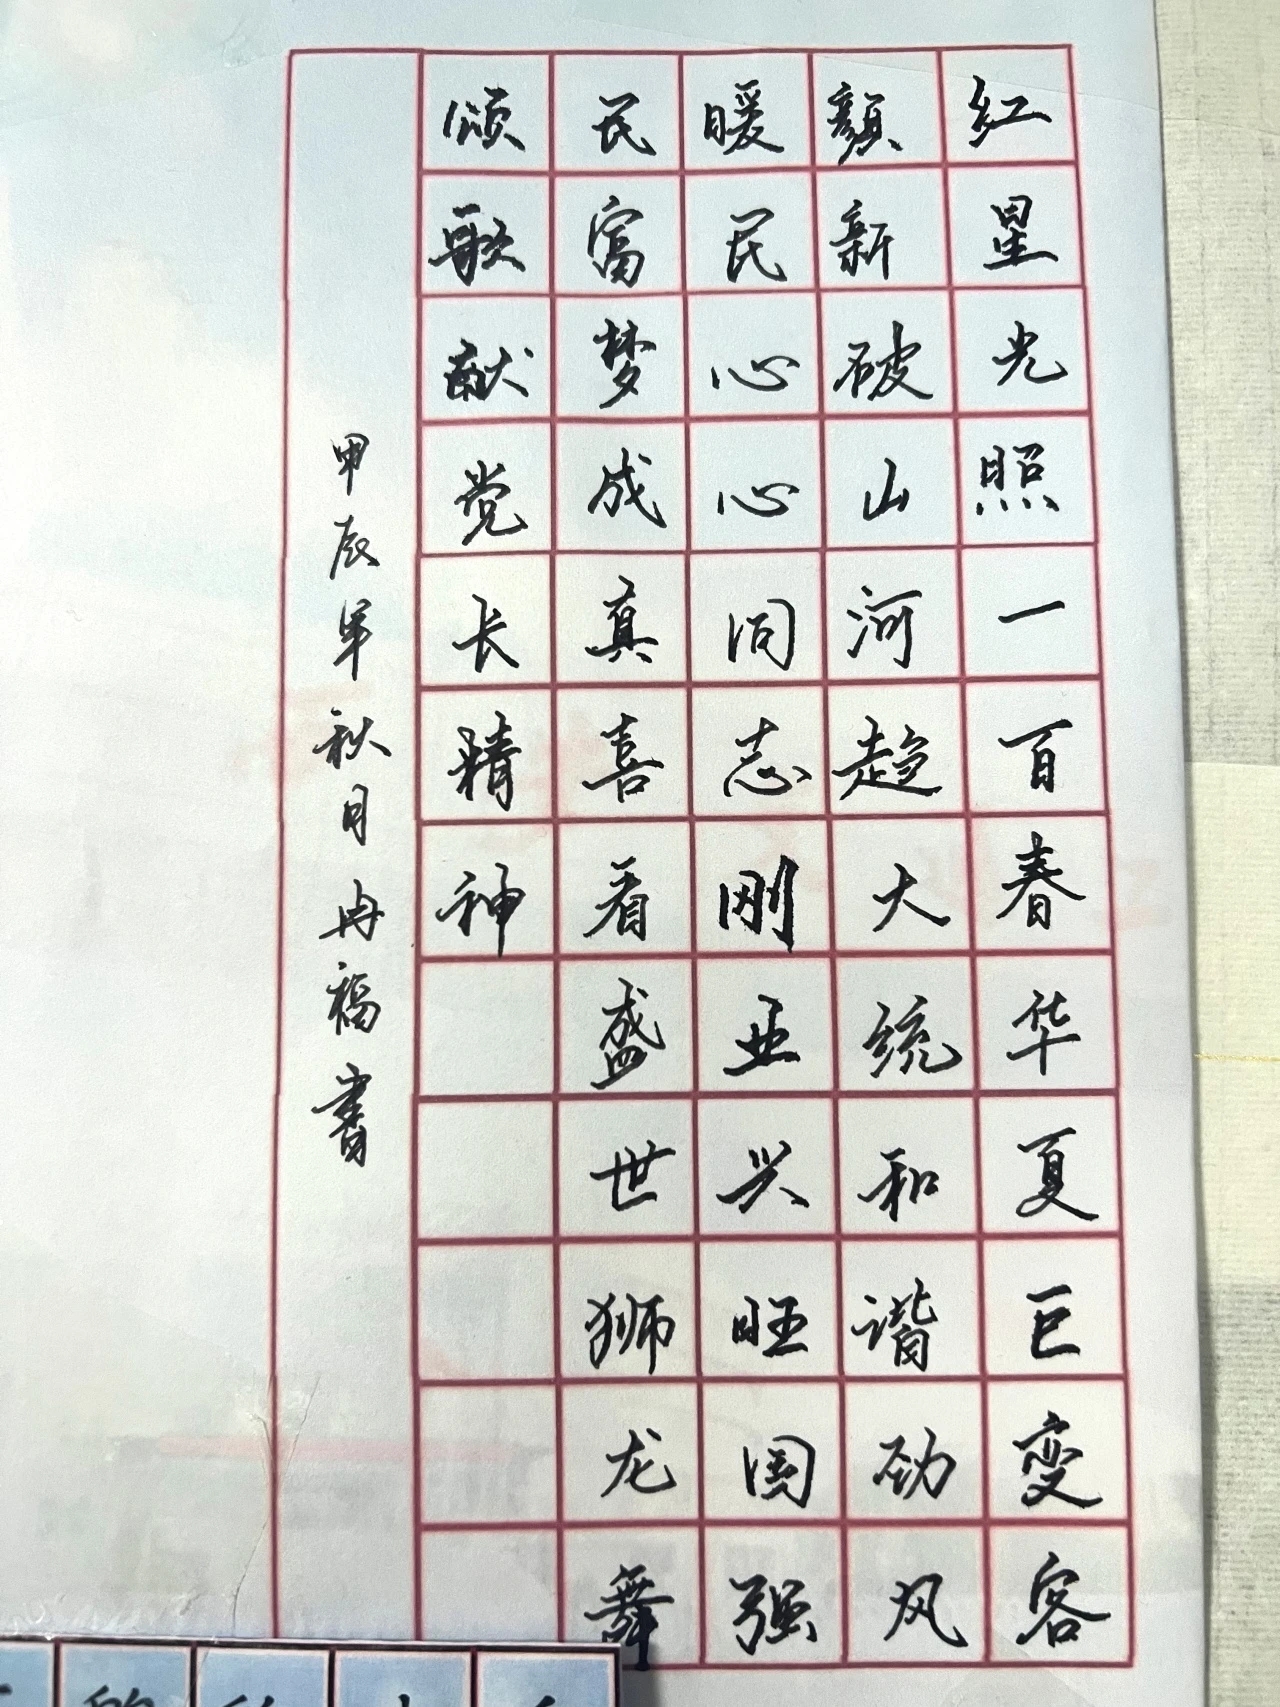 红星光照一百春华夏巨变容
颜新破山河趋大统和谐劲风
暖民心心同志刚业兴旺国强
民富梦成真喜看盛世狮龙舞
颂歌献党长精神
甲辰年秋月冉福书